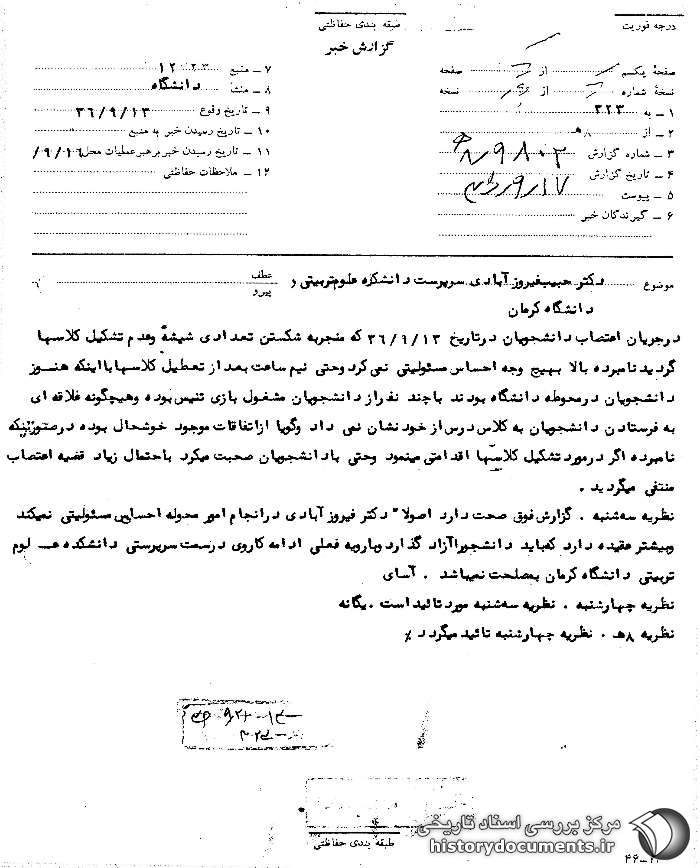 درجه فوریت
طبقه بندی حفاظتی
گزارش خبر
صفحهٔ یکم از صفحه
نسخهٔ شماره از نسخه
۱ ـ به ۳۲۳
۲ ـ از ۸ هـ
۳ ـ شماره گزارش ۹۸۰۲ / ۸ هـ
۴ ـ تاریخ گزارش ۱۷ / ۹ /
۵ ـ پیوست
۶ ـ گیرندگان خبر
۷ ـ منبع
۸ ـ منشأ دانشگاه
۹ ـ تاریخ وقوع ۳۶/۹/۱۳
۱۰ ـ تاریخ رسیدن خبر به منبع
۱۱ ـ تاریخ رسیدن خبر برهبر عملیات محل ۹/۱۶/
۱۲ ـ ملاحظات حفاظتی
موضوع دکتر حبیب فیروز آبادی سرپرست دانشکده علوم تربیتی
دانشگاه کرمان
عطف
پیرو
درجریان اعتصاب دانشجویان درتاریخ ۳۶/۹/۱۳ که منجربه شکستن تعدادی شیشه وعدم تشکیل کلاسها
گردید نامبرده بالا بهیچ وجه احساس مسئولیتی نمی کرد وحتی نیم ساعت بعد از تعطیل کلاسها با اینکه هنــوز
دانشجویان درمحوطه دانشگاه بودند باچند نفراز دانشجویان مشغول بازی تنیس بوده وهیچگونه علاقه ای
به فرستادن دانشجویان به کلاس درس از خود نشان نمی داد وگویا ازاتفاقات موجود خوشحال بوده درصورتیکه
نامبرده اگر درمورد تشکیل کلاسها اقدامتی مینمود وحتی بادانشجویان صحبت میکرد باحتمال زیاد قضیه اعتصاب
منتفی میگردید .
نظریه سه‌شنبه . گزارش فوق صحت دارد اصولا" دکتر فیروز آبادی درانجام امور محوله احساس مسئولیتی نمیکند
وبیشتر عقیده دارد که باید دانشجو را آزاد گذارد وبا رویه فعلی ادامه کار وی درسمت سرپرستی دانشکده عــلوم
تربیتی دانشگاه کرمان بمصلحت نمیباشد . آسای
نظریه چهارشنبه . نظریه سه‌شنبه مورد تائید است . یگانه
نظریه ۸ هـ . نظریه چهارشنبه تائید میگردد ٪
طبقه بندی حفاظتی
مرکز بررسی اسناد تاریخی
historydocuments.ir